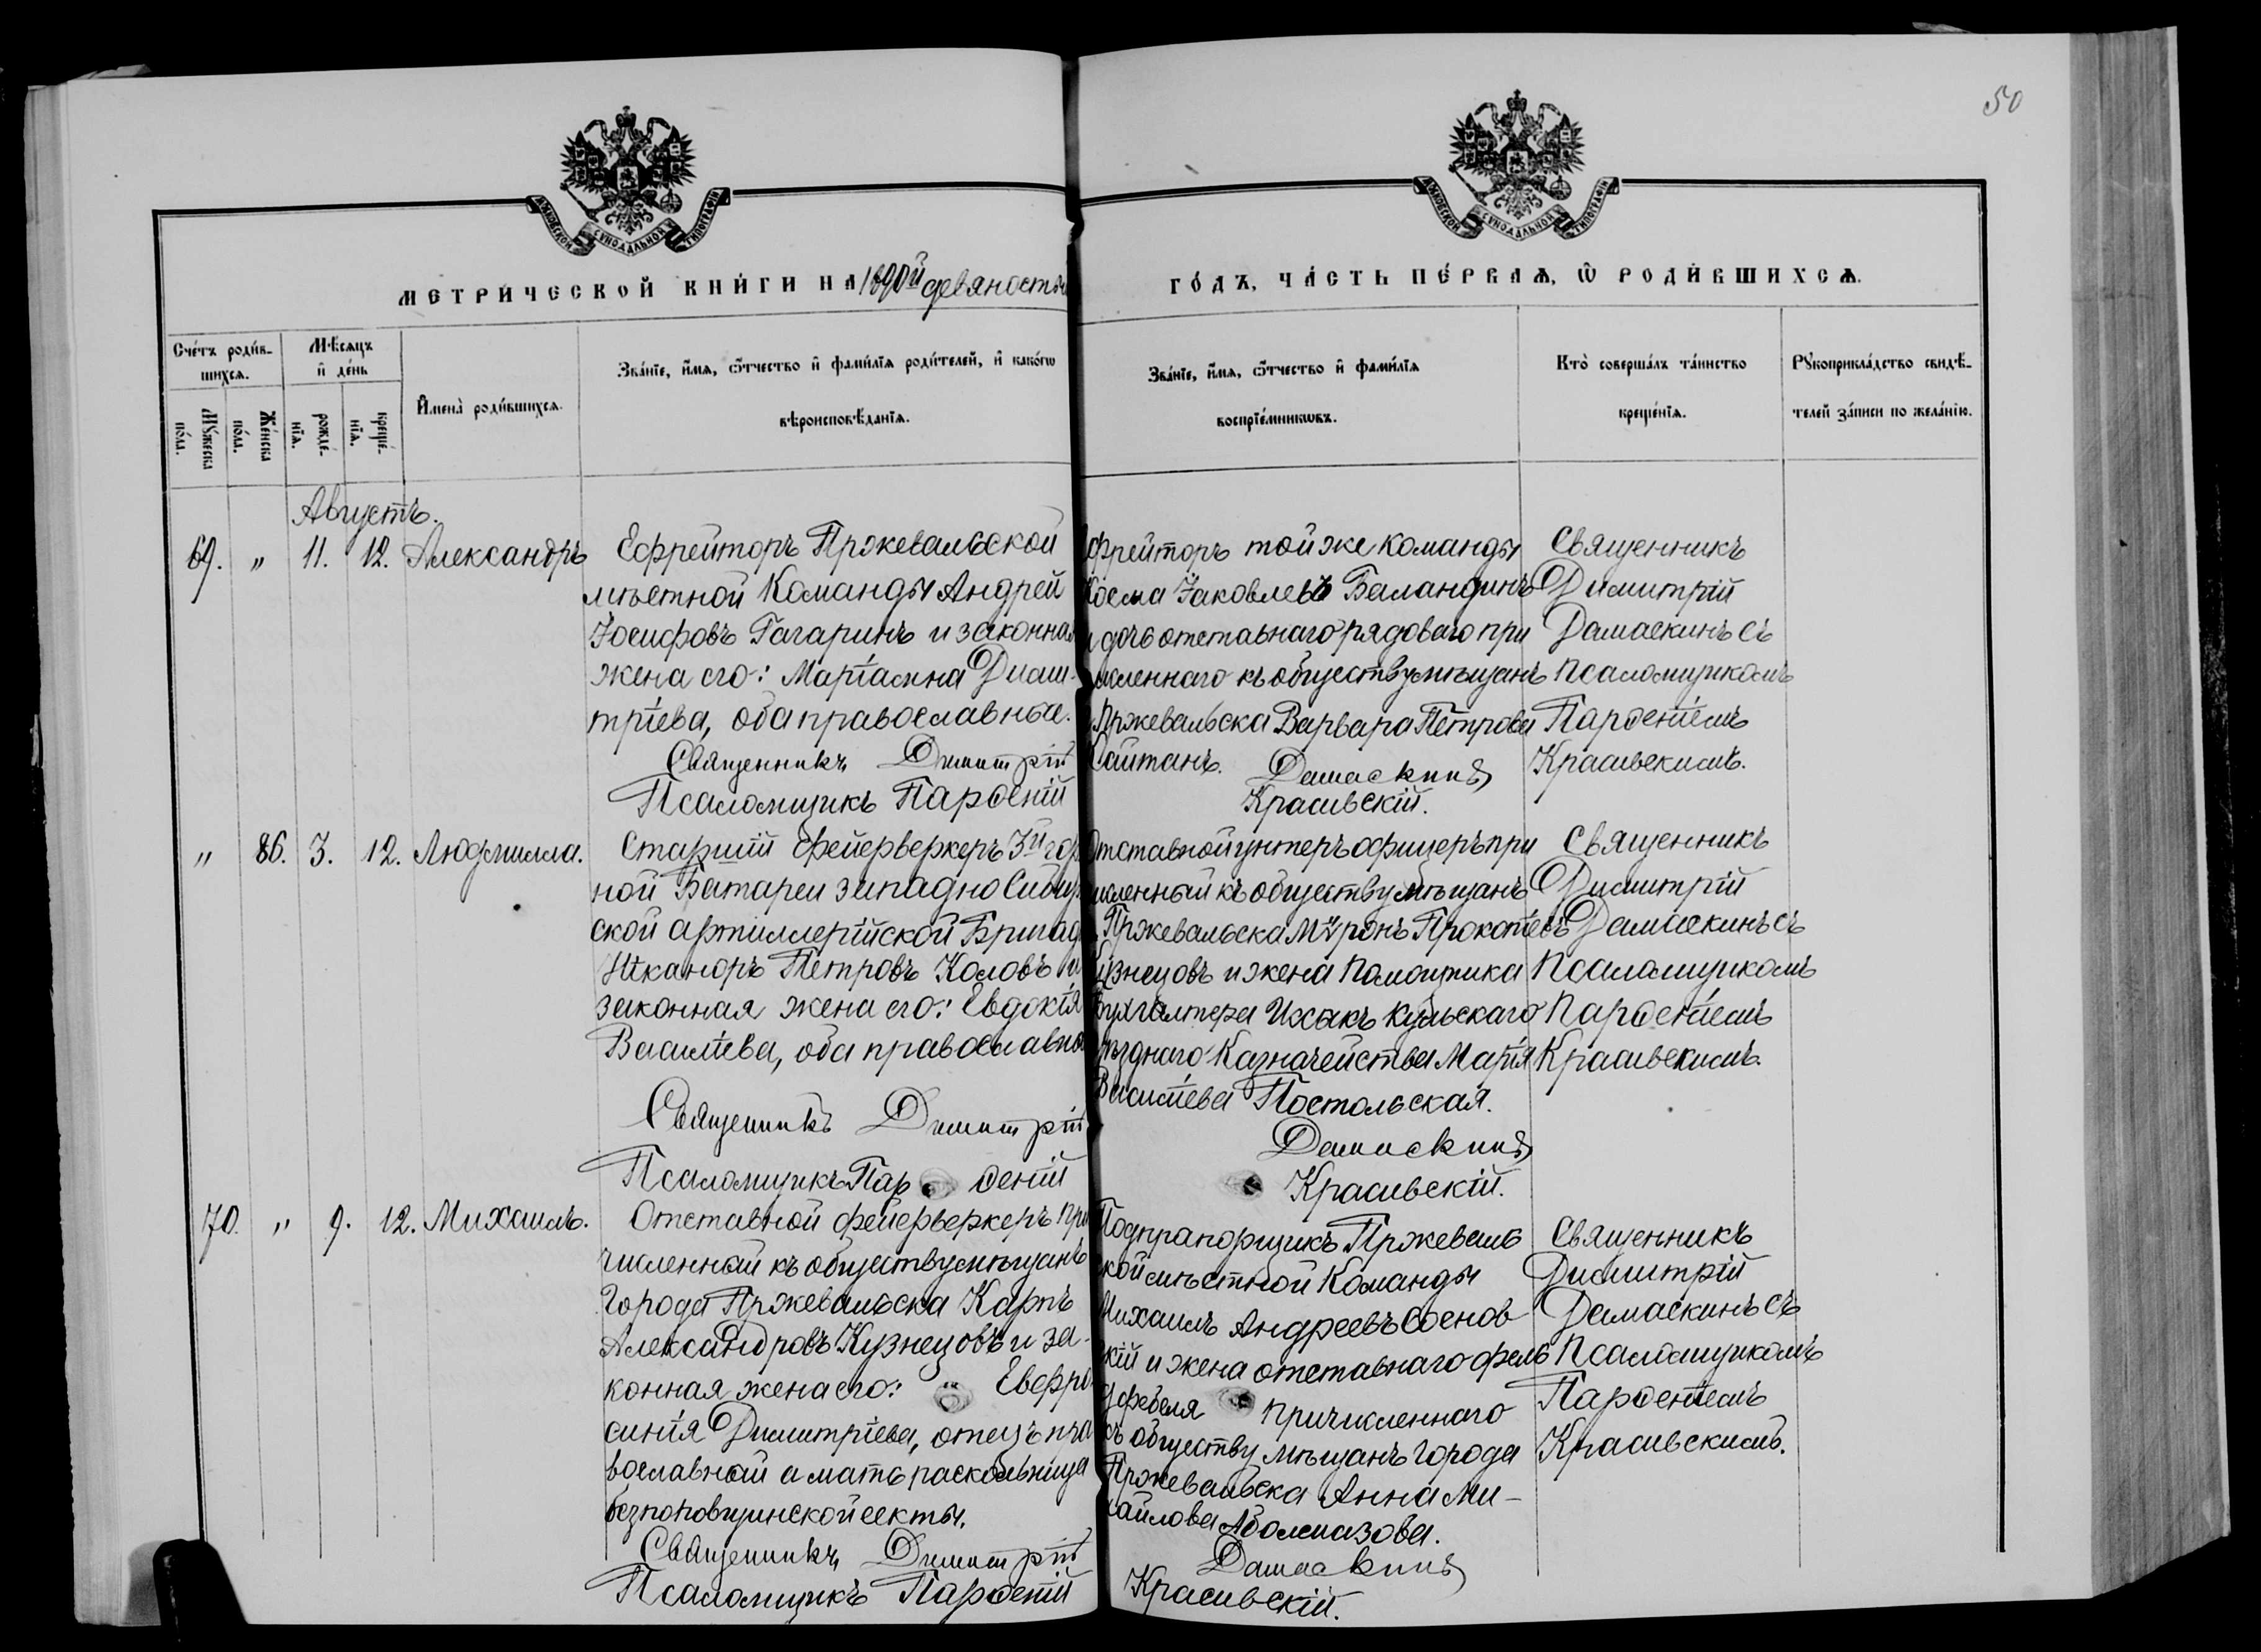 50
МОСКОВСКОЙ СѴНОДАЛЬНОЙ ТИПОГРАФІИ
МОСКОВСКОЙ СѴНОДАЛЬНОЙ ТИПОГРАФІИ
МЕТРИ́ЧЕСКОЙ КНИ́ГИ НА 1890й девяносты
ГО́ДЪ, ЧА́СТЬ ПЕ́РВАѦ, Ѡ҆ РОДИ́ВШИХСѦ.
Сче́тъ роди́в-
шихсѧ.
Мѣ́сѧцъ
и҆ де́нь
И҆мена̀ роди́вшихсѧ.
Зва́нїе, и҆́мѧ, ѻ҆́тчество и҆ фами́лїѧ роди́телей, и҆ како́гѡ
вѣроисповѣ́данїѧ.
Мꙋ́жеска
по́ла.
Же́нска
по́ла.
рожде́-
нїѧ.
креще́-
нїѧ.
Зва́нїе, и҆́мѧ, ѻ҆́тчество и҆ фами́лїѧ
воспрїе́мникѡвъ.
Кто̀ соверша́лъ та́инство
креще́нїѧ.
Рꙋкоприкла́дство свидѣ́-
телей за́писи по жела́нїю.
Августъ.
69. " 11. 12. Александръ
Ефрейторъ Пржевальской
мѣстной Команды Андрей
Іосифовъ Гагаринъ и законная
жена его: Маріамна Дими-
тріева, оба православные.
Священникъ Димитрій
Псаломщикъ Парѳеній
фрейторъ той же команды
Косма Іаковлевъ Баландинъ
и дочь отставнаго рядоваго при
численнаго къ обществу мѣщанъ
Пржевальска Варвара Петрова
Сайтанъ.
Дамаскинъ
Красивскій.
Священникъ
Димитрій
Дамаскинъ съ
псаломщикомъ
Парѳеніемъ
Красивскимъ.
" 86. 3. 12. Людмилла.
Старшій фейерверкеръ 3й гор
ной Батареи западно Сибир
ской артиллерійской Бригады
Никаноръ Петровъ Коловъ и
законная жена его: Евдокія
Василіева, оба православные
Священникъ Димитрій
Псаломщикъ Пар ѳеній
Отставной унтеръ офицеръ при
численный къ обществу мѣщанъ
Пржевальска Мѵронъ Прокопіевъ
Кузнецовъ и жена Помощника
Бухгалтера Иссыкъ кульскаго
уѣзднаго Казначейства Марія
Василіева Постольская.
Дамаскинъ
Красивскій.
Священникъ
Димитрій
Дамаскинъ съ
Псаломщикомъ
Парѳеніемъ
Красивскимъ.
70. " 9. 12. Михаилъ.
Отставной фейерверкеръ при
численный къ обществу мѣщанъ
Города Пржевальска Карпъ
Александровъ Кузнецовъ и за-
конная жена его: Евфро
синія Димитріева, отецъ пра
вославный а мать раскольница
безпоповщинской секты.
Священникъ Димитрій
Псаломщикъ Парѳеній
Подпрапорщикъ Пржеваль
ской мѣстной Команды
Михаилъ Андреевъ Сосновс
кій и жена отставнаго фель
дфебеля причисленнаго
къ обществу мѣщанъ города
Пржевальска Анна Ми-
хайлова Аболмазова.
Дамаскинъ
Красивскій.
Священникъ
Димитрій
Дамаскинъ съ
Псаломщикомъ
Парѳеніемъ
Красивскимъ.